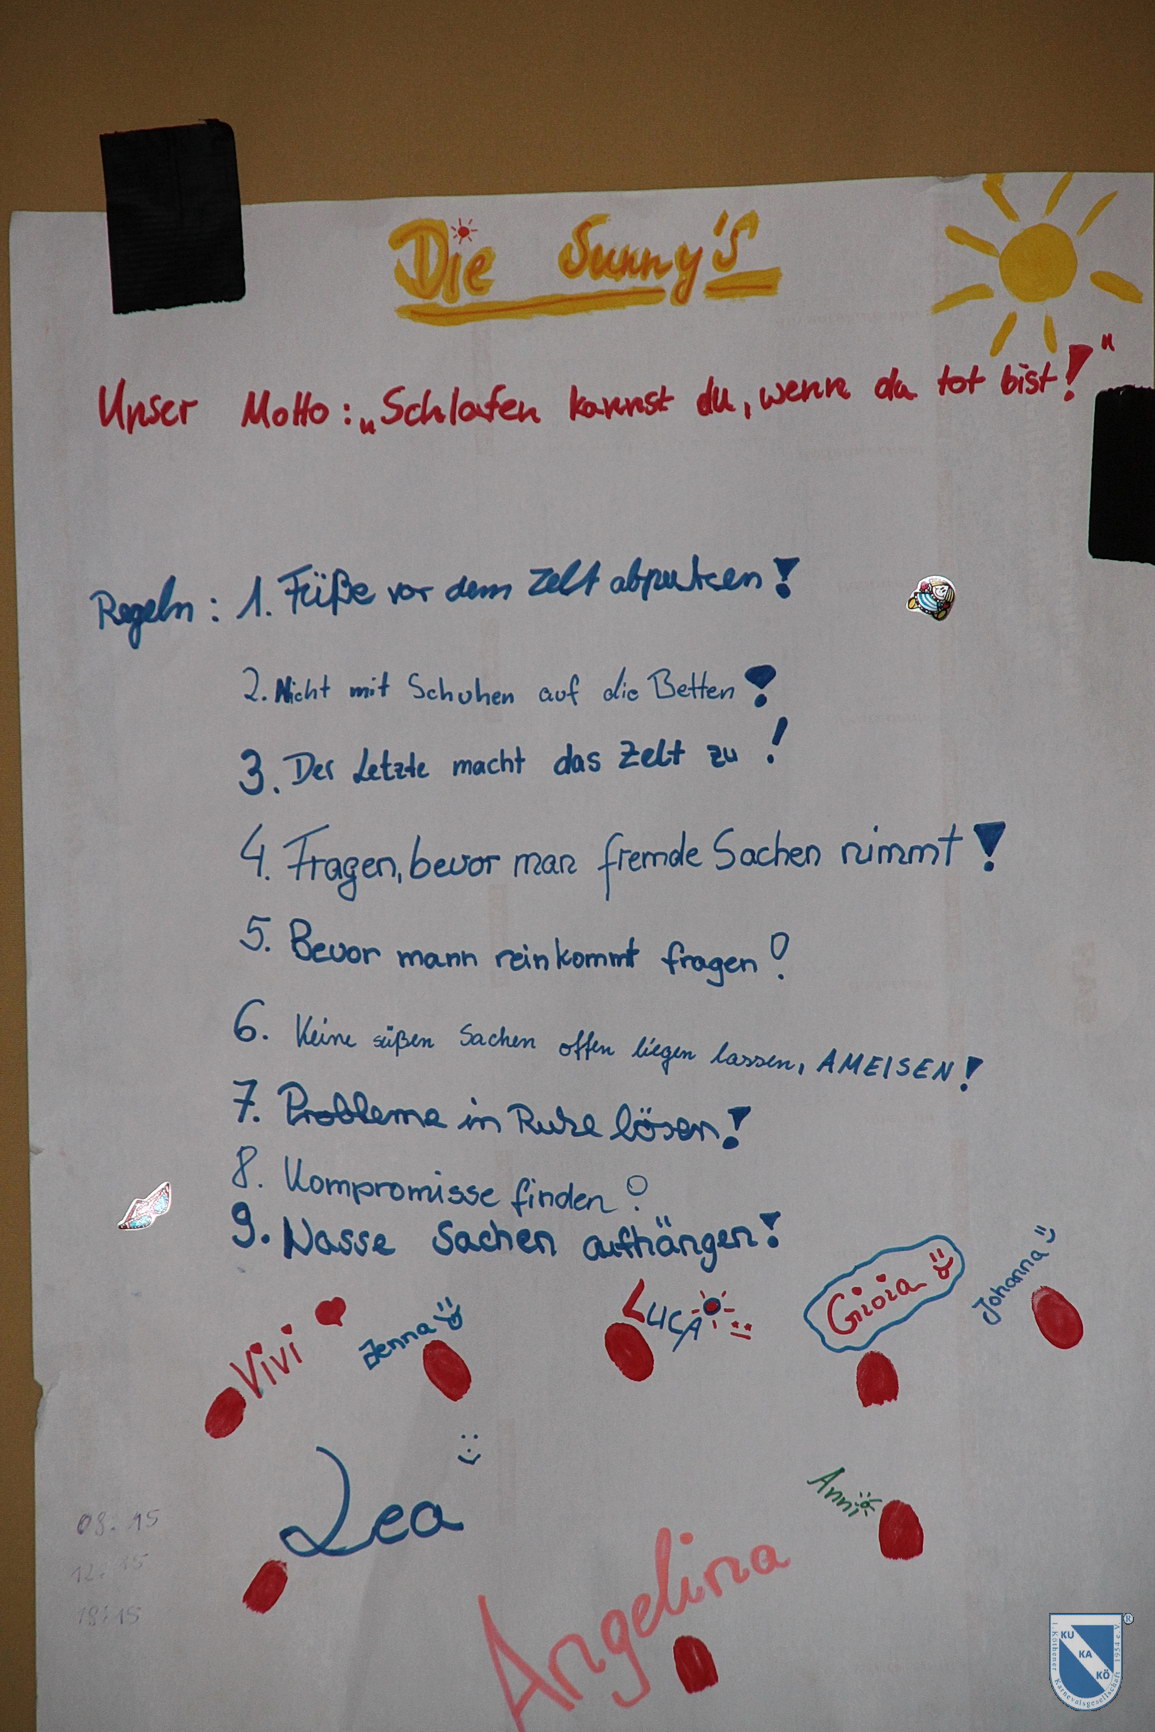 Die Sunny's
Unser Motto: „Schlafen kannst du, wenn du tot bist!"
Regeln: 1. Füße vor dem Zelt abputzen!
2. Nicht mit Schuhen auf die Betten!
3. Der Letzte macht das Zelt zu!
4. Fragen, bevor man fremde Sachen nimmt!
5. Bevor mann rein kommt fragen!
6. Keine süßen Sachen offen liegen lassen, AMEISEN!
7. Probleme in Ruhe lösen!
8. Kompromisse finden!
9. Nasse Sachen aufhängen!
Vivi
Jenna
LUCA
Gioia
Johanna
Lea
Anni
Angelina
08:15
12:15
18:15
KU
KA
KÖ
1. Köthener Karnevalsgesellschaft 1954 e.V.
®